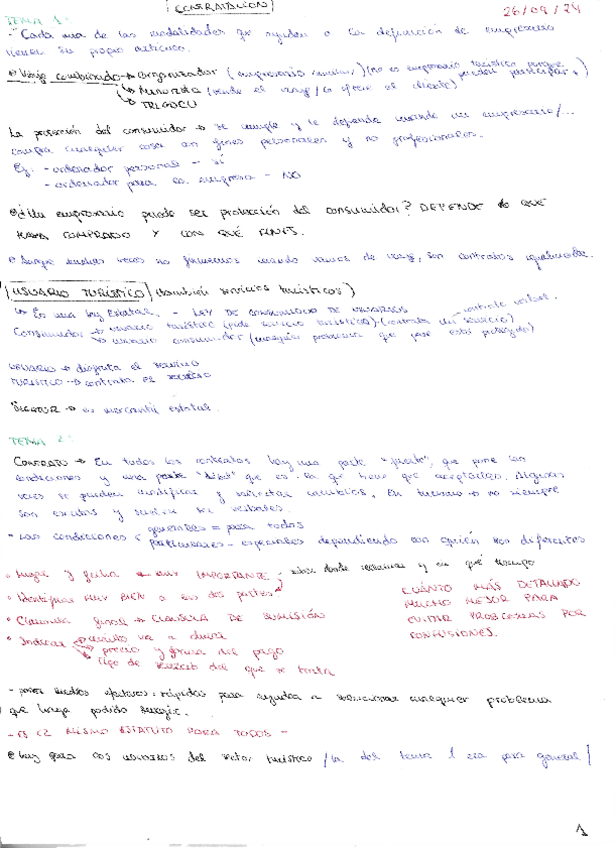 CONTRATACIÓN
26/09/24
TEMA 1:
- Cada una de las modalidades que ayudan a la definición de empresario
tienen su propio
• Viaje combinado → Organizador (empresario (no es empresario turístico porque
pueden participar)
Minorista (vende el viaje / lo ofrece al cliente)
La protección del consumidor → se cumple y le defiende cuando un empresario/...
compra cualquier cosa con fines personales y no profesionales.
Ej: - ordenador personal - SÍ
- ordenador para la empresa - NO
• ¿Un empresario puede ser protección del consumidor? DEPENDE de QUE
HAYA COMPRADO Y CON QUÉ FINES.
• Aunque muchas veces no firmemos cuando vamos de viaje, son contratos igualmente.
USUARIO TURÍSTICO (también servicios turísticos)
↳ Es una ley Estatal. - LEY DE CONSUMIDOR DE USUARIOS
Consumidor → usuario turístico (pide servicio turístico) (contrata un servicio)
→ usuario consumidor (cualquier persona que esté protegido)
USUARIO → disfruta el servicio
TURÍSTICO → contrata el servicio
→ es mercantil estatal.
TEMA 2:
Contrato → En todos los contratos hay una parte "fuerte", que pone las
condiciones y una parte "débil" que es la que tiene que aceptarlas. Algunas
veces se pueden modificar y solicitar cambios. En turismo → no siempre
son escritos y suelen ser verbales.
- Las condiciones generales = para todos
particulares - especiales dependiendo con quién son diferentes
• Lugar y fecha → MUY IMPORTANTE - saber donde reclamar y en qué tiempo
• Identificar MUY BIEN a las dos partes
• Cláusula final → CLÁUSULA DE SUMISIÓN
• Indicar → cuánto va a durar
→ precio y forma del pago
→ tipo de servicio del que se trata
CUÁNTO MÁS DETALLADO
MUCHO MEJOR PARA
EVITAR PROBLEMAS POR
CONFUSIONES.
- poner medios efectivos y rápidos para ayudar a solucionar cualquier problema
que haya podido surgir.
- ES EL MISMO ESTATUTO PARA TODOS -
• Ley para los usuarios del sector turístico / la del tema 1 era para general /
1